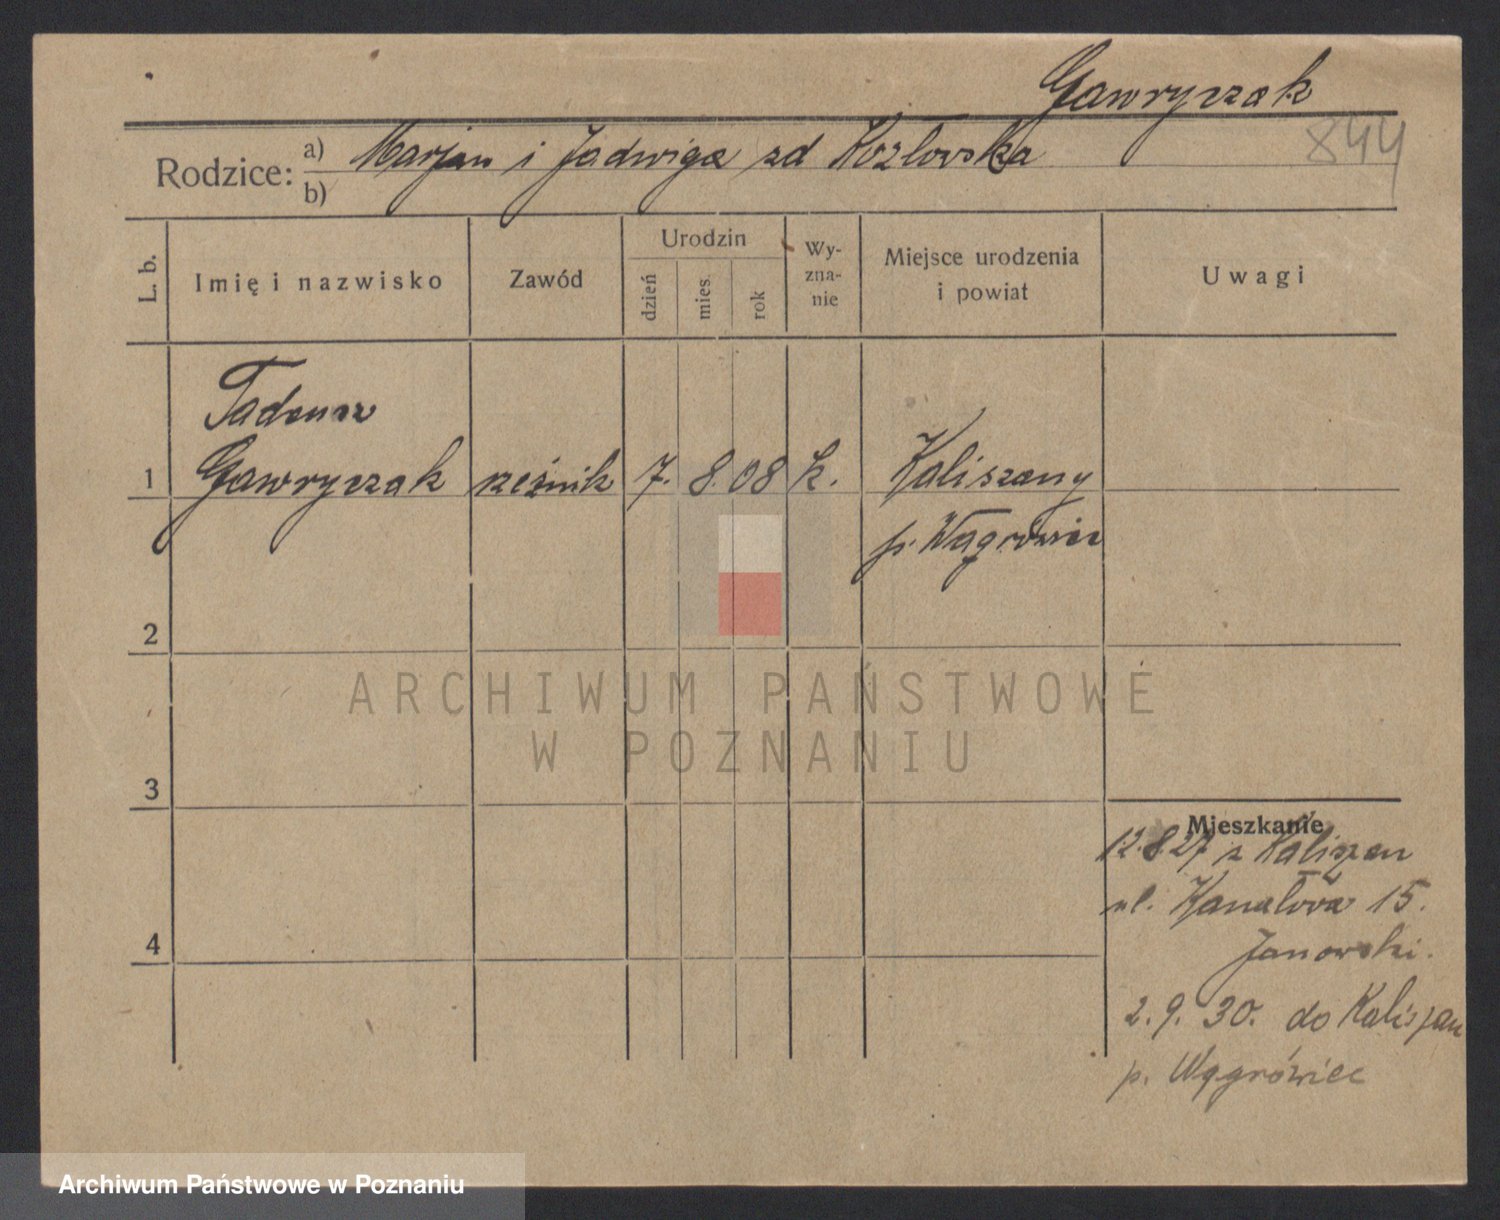 Gawryczak
844
Rodzice: a) Marjan i Jadwiga zd Kozłowska
b)
L. b.
Imię i nazwisko
Zawód
Urodzin
dzień
mies.
rok
Wy-
zna-
nie
Miejsce urodzenia
i powiat
Uwagi
Tadeusz
1 Gawryczak rzeźnik 7. 8. 08 k. Kaliszany
p. Wągrówiec
2
ARCHIWUM PAŃSTWOWE
W POZNANIU
3
Mieszkanie
12.8.27 z Kaliszan
ul. Kanałowa 15.
4
Janowski.
2. 9. 30. do Kaliszan
p. Wągrówiec
Archiwum Państwowe w Poznaniu